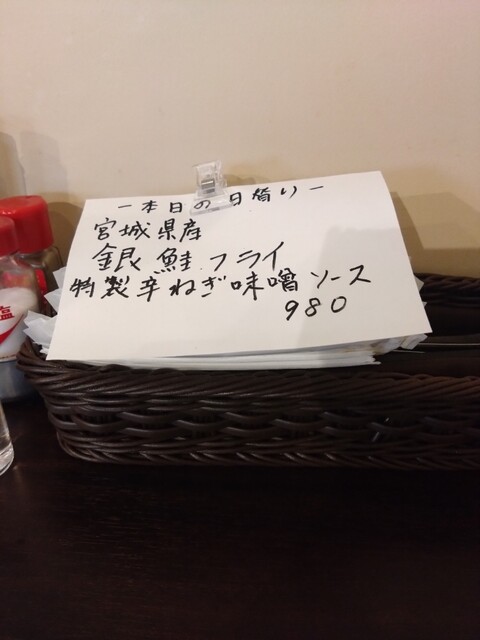 ー本日の日替りー
宮城県産
銀鮭フライ
特製辛ねぎ味噌ソース
980
塩